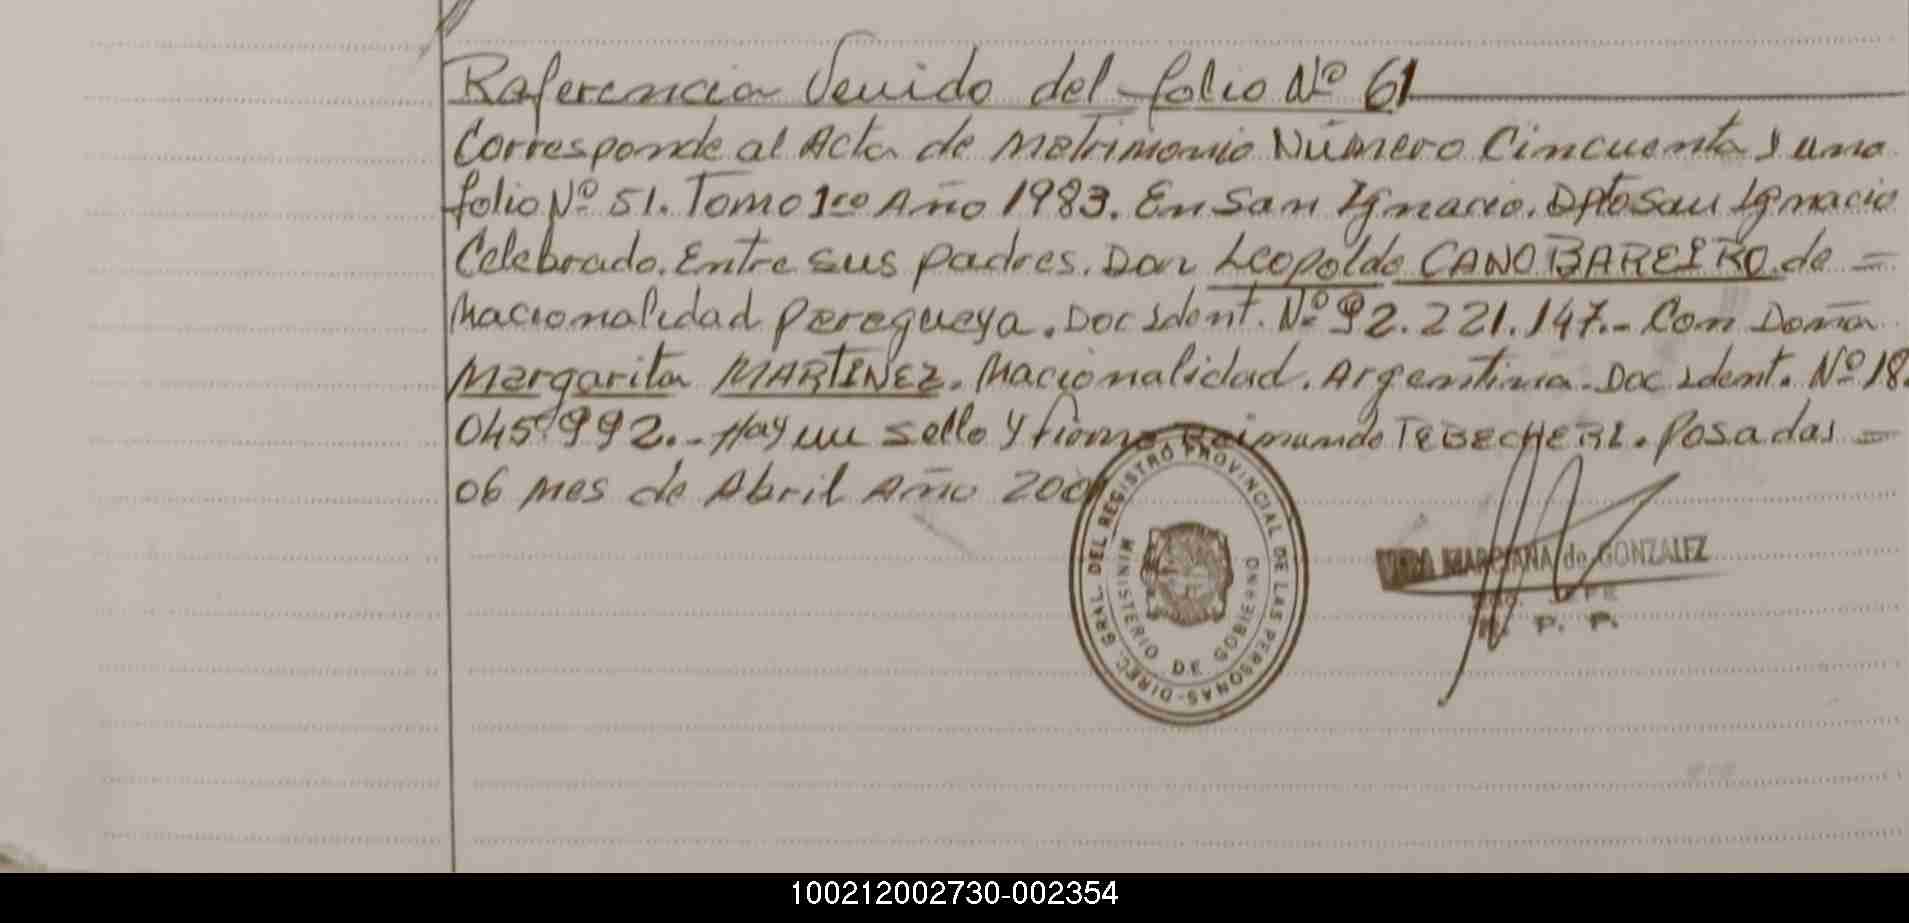 Referencia Venido del folio Nº 61
Corresponde al Acta de Matrimonio Número Cincuenta y uno
folio Nº 51. Tomo 1ro Año 1983. En San Ignacio. Dpto San Ignacio
Celebrado. Entre sus padres. Don Leopoldo CANO BAREIRO de =
Nacionalidad Peregueya. Doc Ident. Nº 92.221.147.- Con Doña
Margarita MARTINEZ. Nacionalidad. Argentina. Doc Ident. Nº 18.
045.992.- Hay un sello y firma Raimundo TEBECHERI. Posadas =
06 Mes de Abril Año
DIREC. GRAL. DEL REGISTRO PROVINCIAL DE LAS PERSONAS-
MINISTERIO DE GOBIERNO
MARCIANA de GONZALEZ
P. P.
100212002730-002354